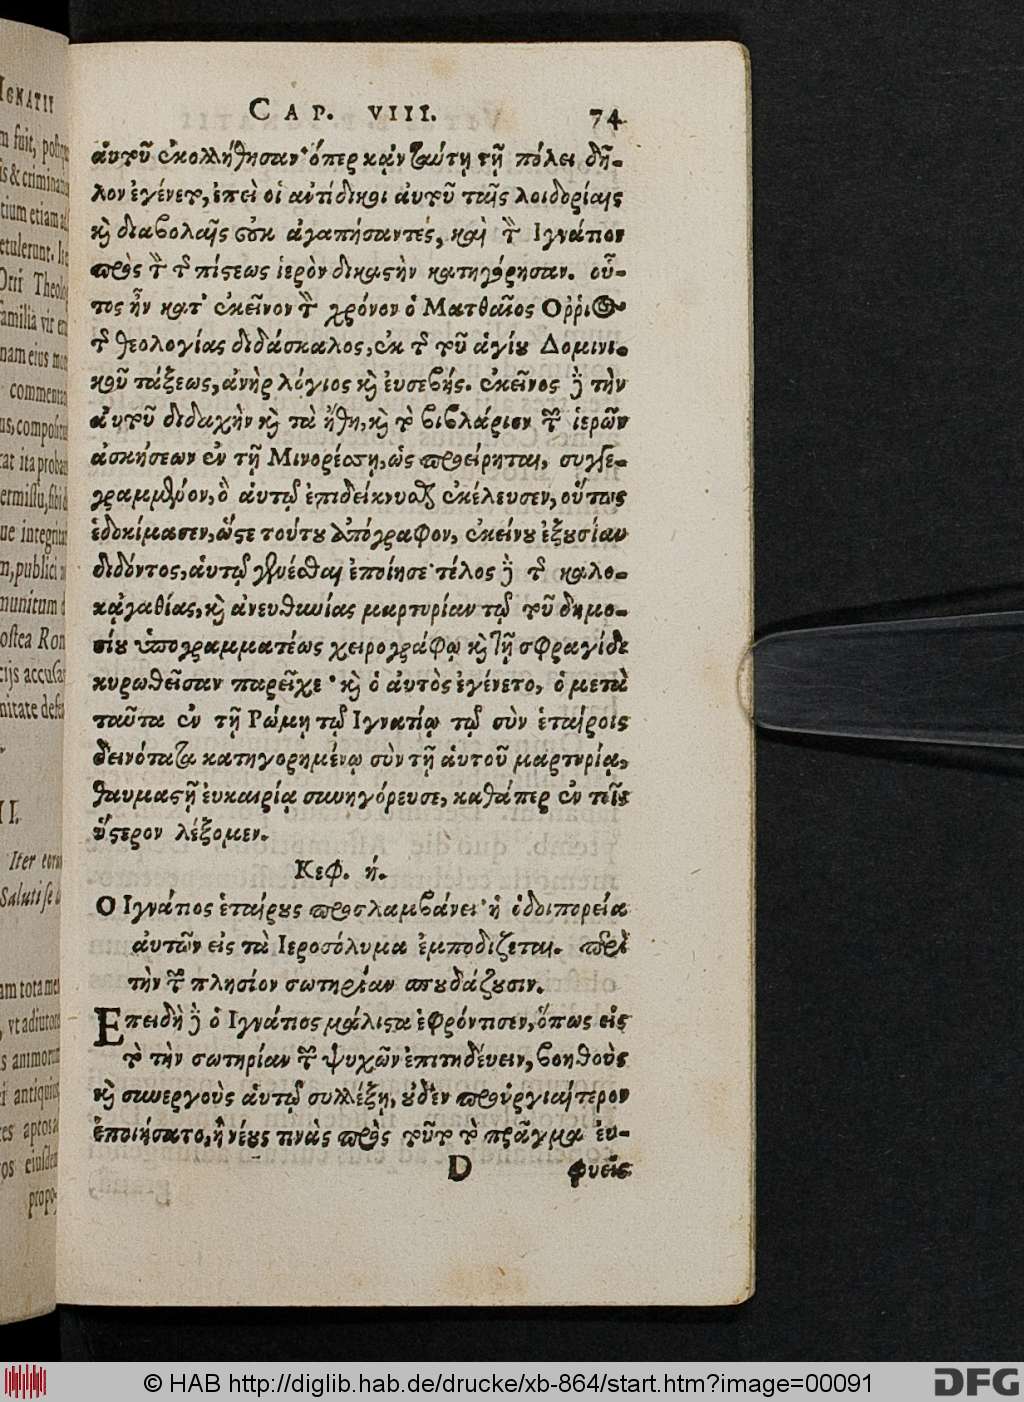 CAP. VIII. 74
αὐτοῦ ἐκολλήθησαν· ὅπερ κᾀν ταύτῃ τῇ πόλει δῆ-
λον ἐγένετο, ἐπεὶ οἱ ἀντίδικοι αὐτοῦ ταῖς λοιδορίαις
καὶ διαβολαῖς οὐκ ἀγαπήσαντές, καὶ τὸν Ἰγνάτιον
πρὸς τὸν τῆς πίστεως ἱερὸν δικαστὴν κατηγόρησαν. οὗ-
τος ἦν κατ' ἐκεῖνον τὸν χρόνον ὁ Ματθαῖος Ὄῤῥιος
τῆς θεολογίας διδάσκαλος, ἐκ τῆς τοῦ ἁγίου Δομινι-
κοῦ τάξεως, ἀνὴρ λόγιος καὶ ἐυσεβής. ἐκεῖνος δὲ τὴν
αὐτοῦ διδαχὴν καὶ τὰ ἤθη, καὶ τὸ βιβλάριον τῶν ἱερῶν
ἀσκήσεων ἐν τῇ Μινορέσῃ, ὡς προείρηται, συγγε-
γραμμένον, ὃ αὐτῷ ἐπιδείκνυσθαι ἐκέλευσεν, οὕτως
ἐδοκίμασεν, ὥστε τούτου ἀπόγραφον, ἐκείνου ἐξουσίαν
διδόντος, αὐτῷ γενέσθαι ἐποίησε· τέλος δὲ τῆς καλο-
κᾀγαθίας, καὶ ἀνευθυνίας μαρτυρίαν τῷ τοῦ δημο-
σίου ὑπογραμματέως χειρογράφῳ καὶ τῇ σφραγίδι
κυρωθεῖσαν παρεῖχε· καὶ ὁ αὐτὸς ἐγένετο, ὁ μετὰ
ταῦτα ἐν τῇ Ῥώμῃ τῷ Ἰγνατίῳ τῷ σὺν ἑταίροις
δεινότατα κατηγορημένῳ σὺν τῇ αὑτοῦ μαρτυρίᾳ,
θαυμαστῇ ἐυκαιρίᾳ συνηγόρευσε, καθάπερ ἐν τοῖς
ὕστερον λέξομεν.
Κεφ. ή.
Ὁ Ἰγνάτιος ἑταίρους προσλαμβάνει· ἡ ὁδοιπορεία
αὐτῶν εἰς τὰ Ἱεροσόλυμα ἐμποδίζεται. περὶ
τὴν τῶν πλησίον σωτηρίαν σπουδάζουσιν.
Ἐπειδὴ δὲ ὁ Ἰγνάτιος μάλιστα ἐφρόντισεν, ὅπως εἰς
τὸ τὴν σωτηρίαν τῶν ψυχῶν ἐπιτηδέυειν, βοηθοὺς
καὶ συνεργοὺς αὑτῷ συλλέξῃ, οὐδὲν προὐργιαίτερον
ἐποιήσατο, ἢ νέους τινὰς πρὸς τοῦτο τὸ πρᾶγμα ἐυ-
D φυεῖς
IGNATII
© HAB http://diglib.hab.de/drucke/xb-864/start.htm?image=00091
DFG